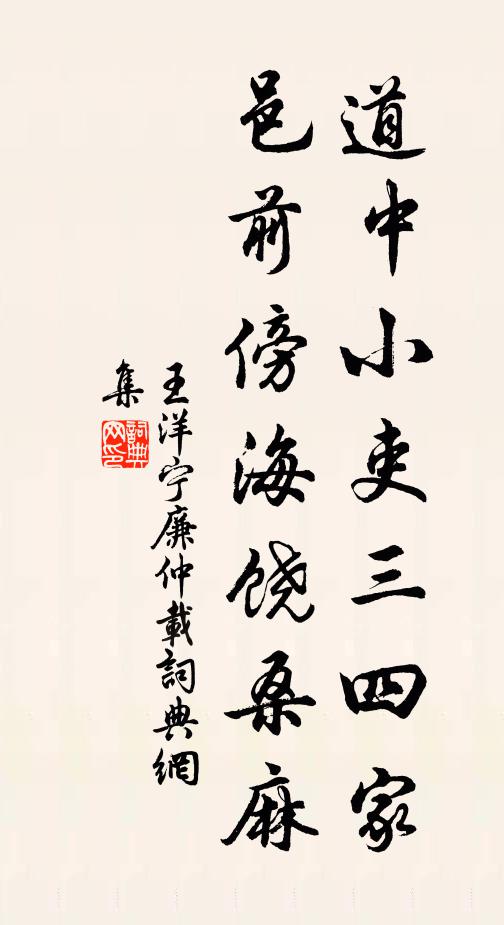 道中小吏三四家
邑前傍海饶桑麻
王洋宁廉仲載詞典網
集
詞典
网印